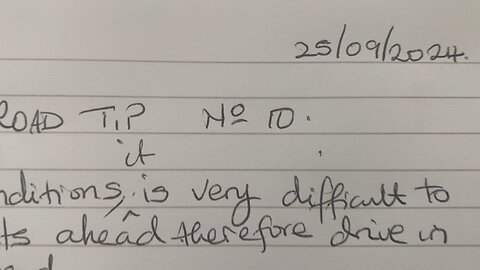 25/09/2024.
ROAD TIP No 10.
it
nditions, is very difficult to
ts ahead therefore drive in